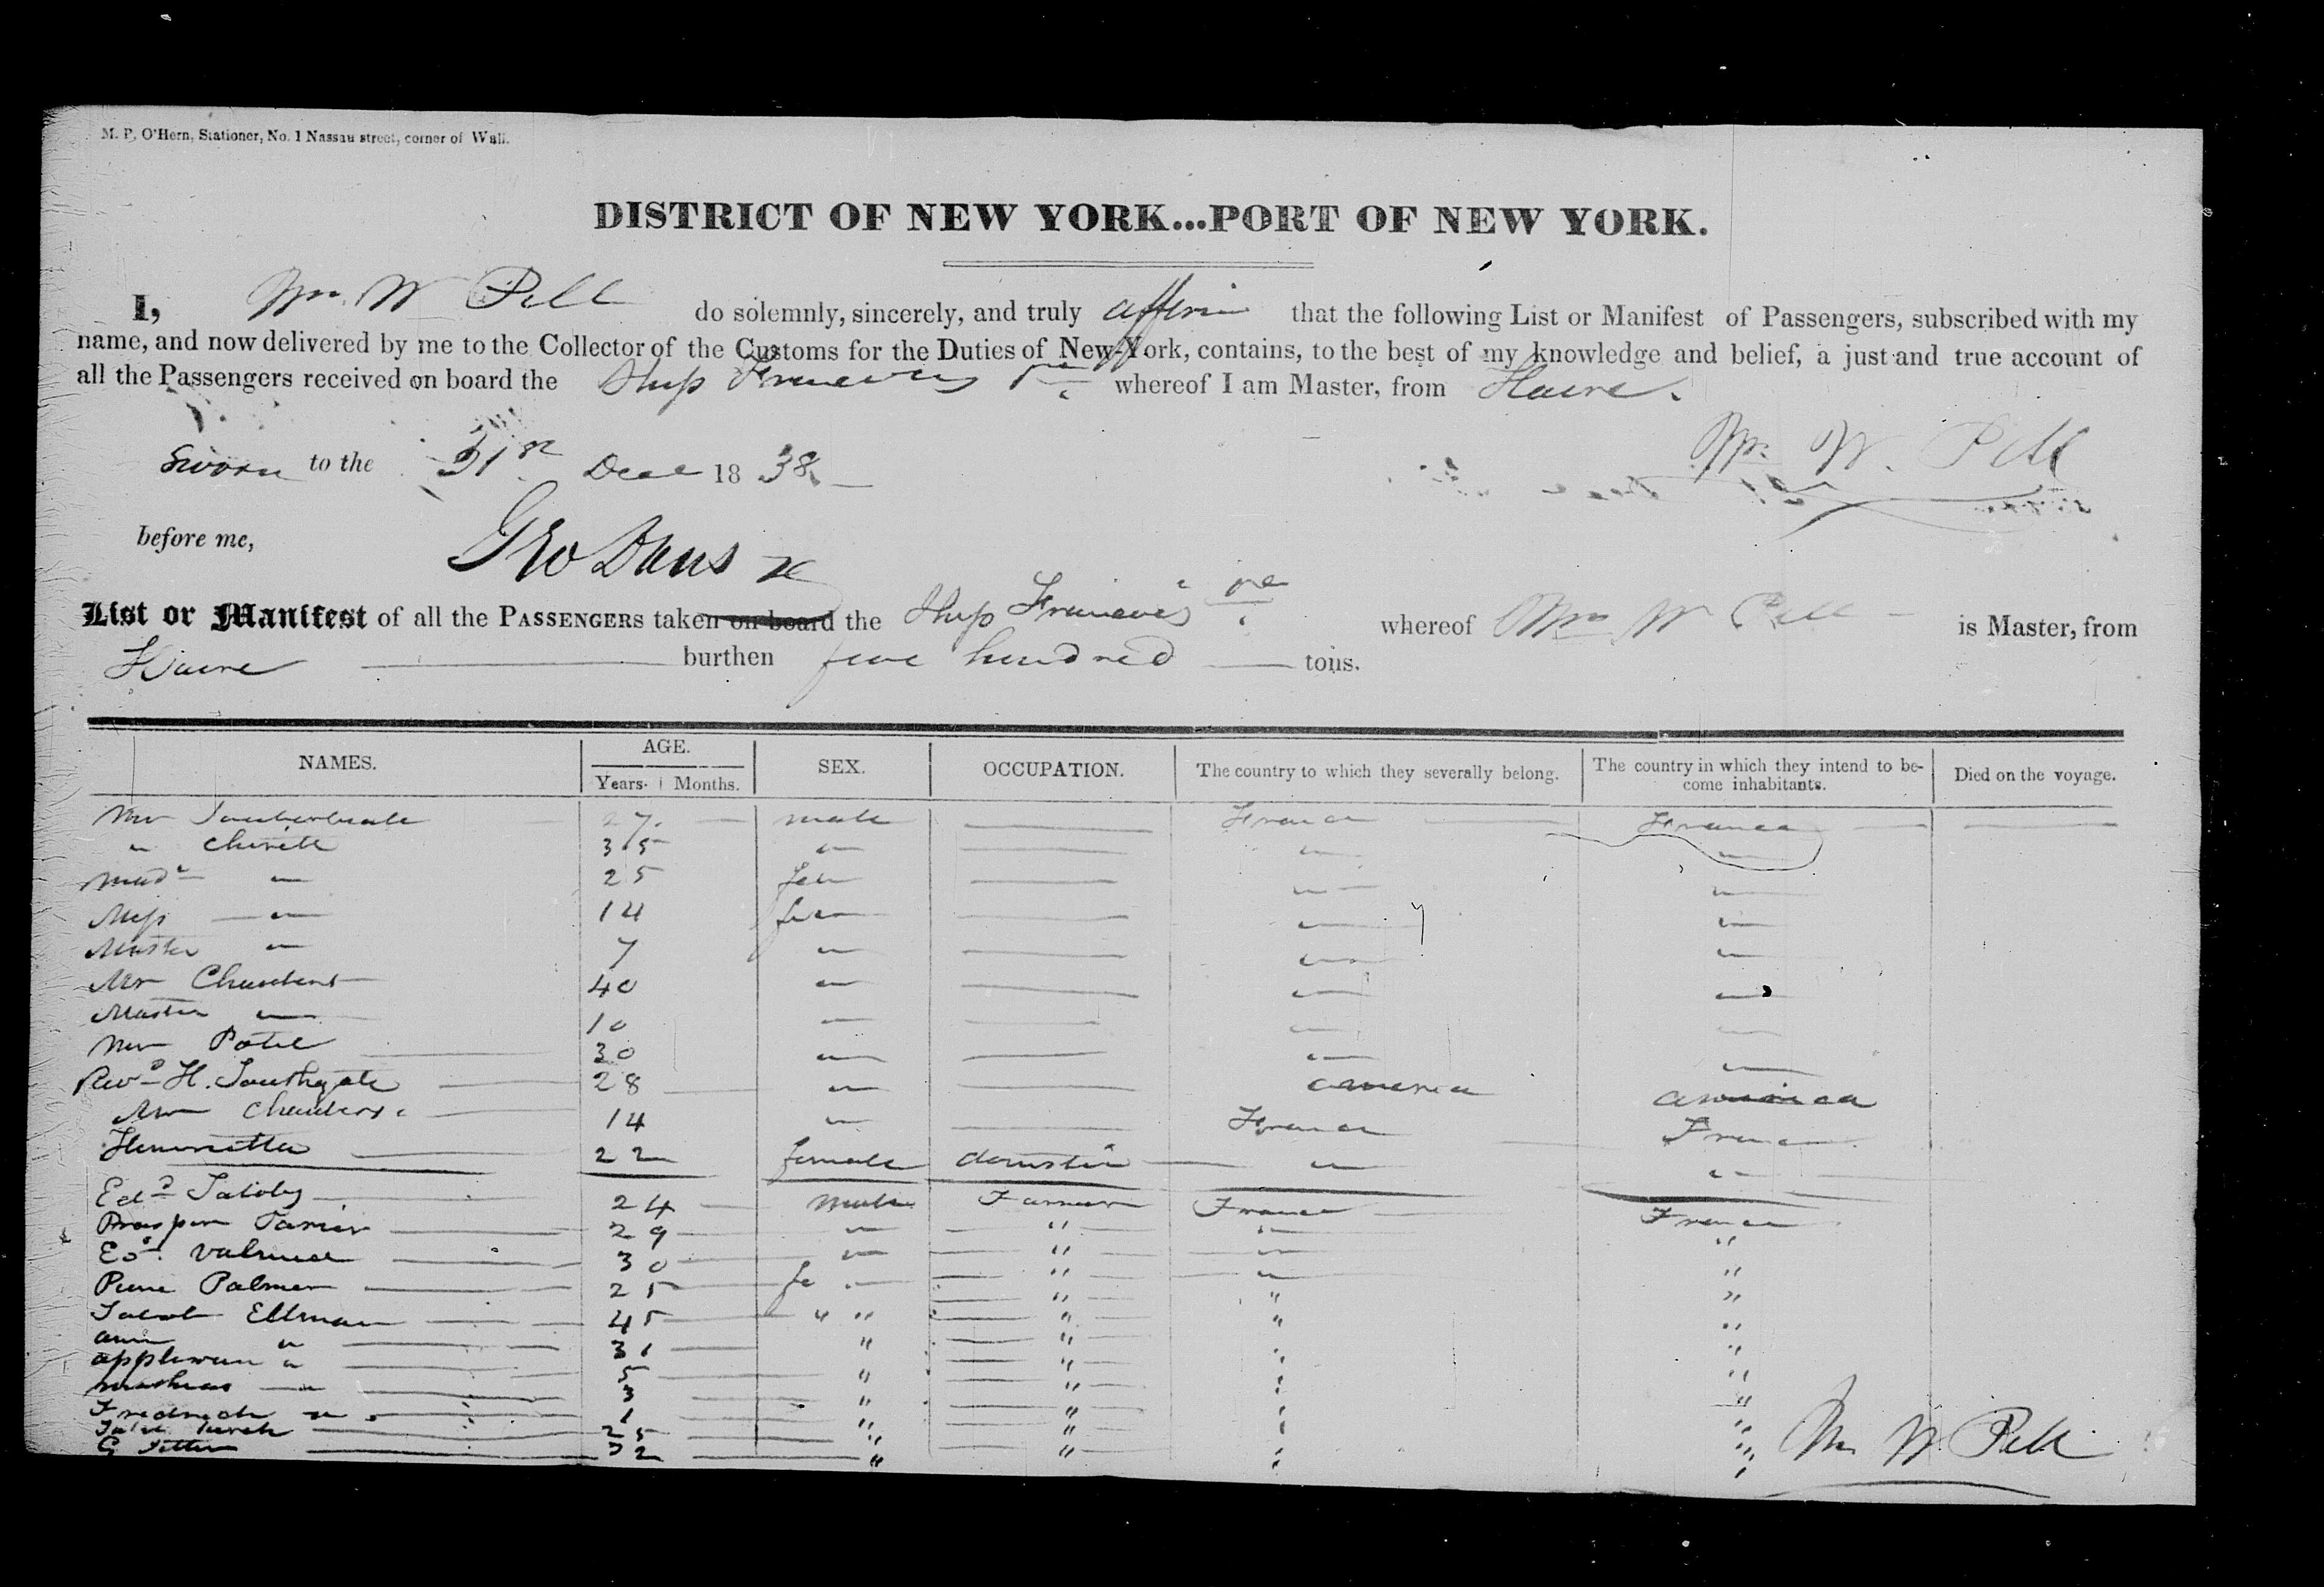 M. P. O'Hern, Stationer, No. 1 Nassau street, corner of Wall.
DISTRICT OF NEW YORK...PORT OF NEW YORK.
I, Wm. W Pell do solemnly, sincerely, and truly affirm that the following List or Manifest of Passengers, subscribed with my
name, and now delivered by me to the Collector of the Customs for the Duties of New-York, contains, to the best of my knowledge and belief, a just and true account of
all the Passengers received on board the Ship Francois 1er whereof I am Master, from Havre.
Wm W. Pell
Sworn to the 31st Dec 1838
before me,
Geo Davis
List or Manifest of all the PASSENGERS taken on board the Ship Francois 1er whereof Wm W Pell is Master, from
Havre burthen five hundred tons.
NAMES. AGE. Years. Months. SEX. OCCUPATION. The country to which they severally belong. The country in which they intend to become inhabitants. Died on the voyage.
Mr 27 male France France
" 35 "  " "
Mad " 25 fem " "
Miss " 14 fem " "
Master " 7 " " "
Mr 40 " " "
Master " 10 " " "
Mr Potel 30 " " "
Revd H. Southgate 28 " America America
14 " France France
Henrietta 22 female domestic " "
Edd 24 male Farmer France France
Prosper 29 " " " "
30 " " " "
Palmer 25 fe " " " "
Jacob Ellman 45 " " " " "
Ann " 31 " " " "
" 5 " " " "
Mathias " 3 " " " "
Fredrick " 1 " " " "
25 " " " "
G 32 " " " "
Wm W. Pell